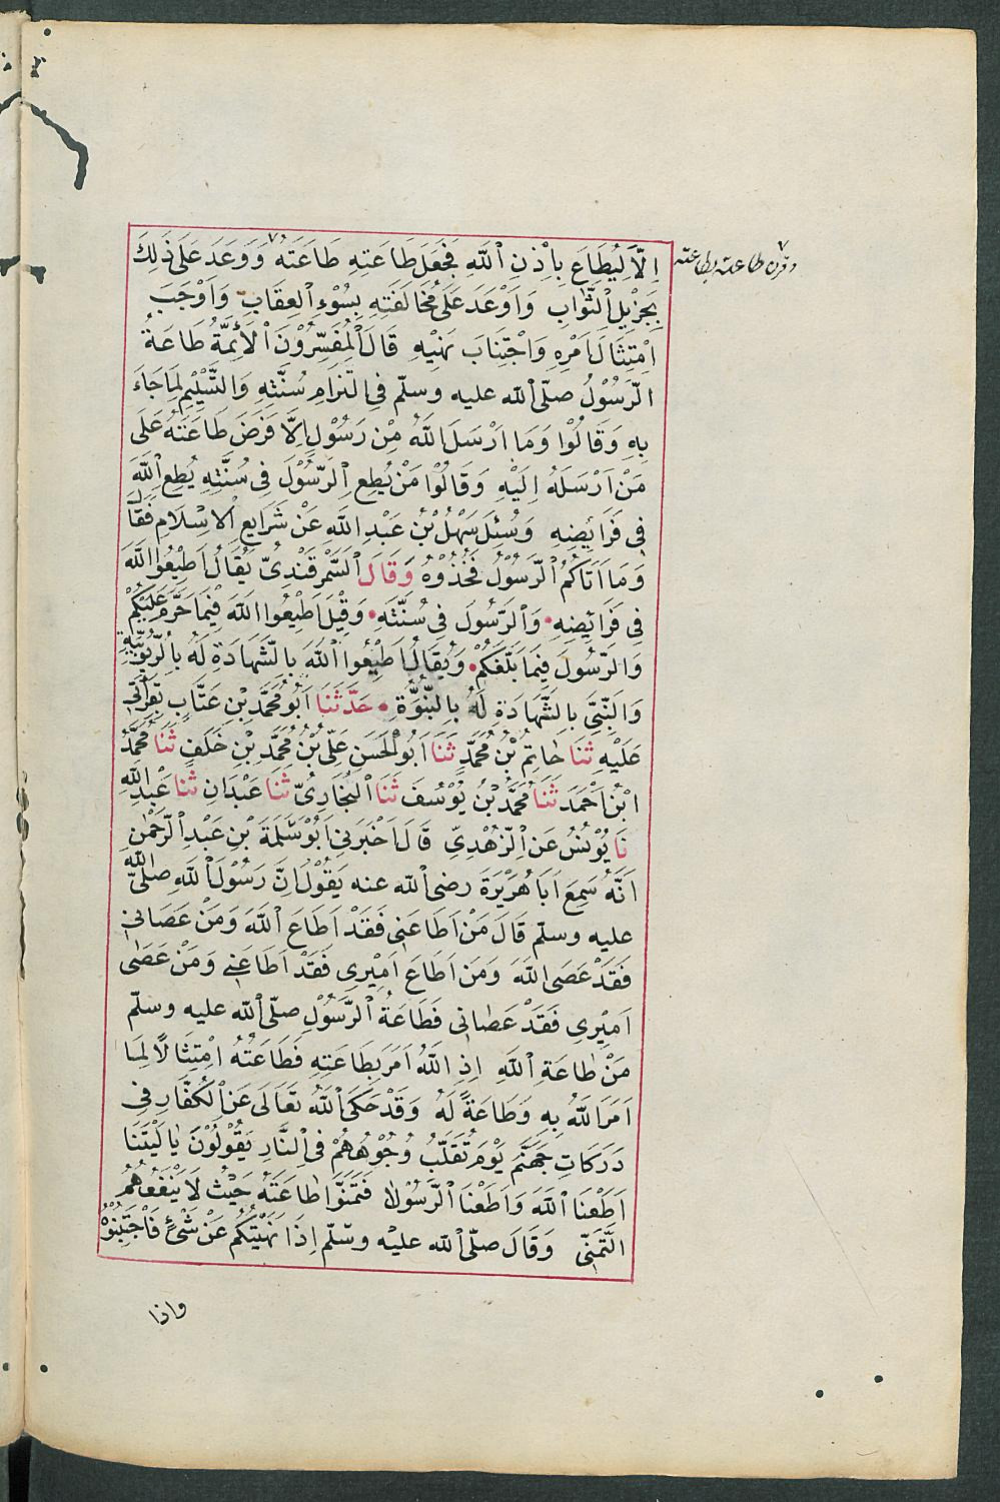 اِلَّا لِيُطَاعَ بِاِذْنِ اللّٰهِ فَجَعَلَ طَاعَتِهِ طَاعَتَهُ وَوَعَدَ عَلَى ذٰلِكَ
وقرن طاعته بطاعته
بِجَزِيْلِ الثَّوَابِ وَاَوْعَدَ عَلَى مُخَالَفَتِهِ بِسُوْءِ الْعِقَابِ وَاَوْجَبَ
امْتِثَالَ اَمْرِهِ وَاجْتِنَابَ نَهْيِهِ قَالَ الْمُفَسِّرُوْنَ الْاَئِمَّةُ طَاعَةُ
الرَّسُوْلُ صلّى الله عليه وسلّم فِى الْتِزَامِ سُنَّتِهِ وَالتَّسْلِيْمِ لِمَا جَاءَ
بِهِ وَقَالُوْا وَمَا اَرْسَلَ اللّٰهُ مِنْ رَسُوْلٍ اِلَّا فَرَضَ طَاعَتَهُ عَلَى
مَنْ اَرْسَلَهُ اِلَيْهِ وَقَالُوْا مَنْ يُطِعِ الرَّسُوْلَ فِى سُنَّتِهِ يُطِعِ اللّٰهَ
فِى فَرَايِضِهِ وَسُئِلَ سَهْلُ بْنُ عَبْدِ اللّٰهِ عَنْ شَرَايِعِ الْاِسْلَامِ فَقَالَ
وَمَا اٰتَاكُمُ الرَّسُوْلُ فَخُذُوْهُ وَقَالَ السَّمَرْقَنْدِىُّ يُقَالُ اَطِيْعُوا اللّٰهَ
فِى فَرَائِضِهِ • وَالرَّسُولَ فِى سُنَّتِهِ • وَقِيْلَ اَطِيْعُوا اللّٰهَ فِيْمَا حَرَّمَ عَلَيْكُمْ
وَالرَّسُولَ فِيْمَا بَلَّغَكُمْ • وَيُقَالُ اَطِيْعُوا اللّٰهَ بِالشَّهَادَةِ لَهُ بِالرُّبُوْبِيَّةِ
وَالنَّبِىَّ بِالشَّهَادَةِ لَهُ بِالنُّبُوَّةِ • حَدَّثَنَا اَبُو مُحَمَّدِ بْنِ عَتَّابٍ بِقِرَائَتِى
عَلَيْهِ ثَنَا حَاتِمُ بْنُ مُحَمَّدٍ ثَنَا اَبُو الْحَسَنِ عَلِىُّ بْنُ مُحَمَّدِ بْنِ خَلَفٍ ثَنَا مُحَمَّدُ
ابْنُ اَحْمَدَ ثَنَا مُحَمَّدُ بْنُ يُوْسُفَ ثَنَا الْبُخَارِىُّ ثَنَا عَبْدَانِ ثَنَا عَبْدِ اللّٰهِ
نَا يُوْنُسُ عَنِ الزُّهْدِىِّ قَالَ اَخْبَرَنِى اَبُوْ سَلَمَةَ بْنِ عَبْدِ الرَّحْمٰنِ
اَنَّهُ سَمِعَ اَبَا هُرَيْرَةَ رضى الله عنه يَقُوْلُ اِنَّ رَسُوْلَ اللّٰهِ صلىّ الله
عليه وسلّم قَالَ مَنْ اَطَاعَنِى فَقَدْ اَطَاعَ اللّٰهَ وَمَنْ عَصَانِى
فَقَدْ عَصَى اللّٰهَ وَمَنْ اَطَاعَ اَمِيْرِى فَقَدْ اَطَاعَنِى وَمَنْ عَصٰى
اَمِيْرِى فَقَدْ عَصَانِى فَطَاعَةُ الرَّسُوْلِ صلّى الله عليه وسلّم
مَنْ طَاعَةِ اللّٰهِ اِذِ اللّٰهُ اَمَرَ بِطَاعَتِهِ فَطَاعَتُهُ امْتِثَالًا لِمَا
اَمَرَ اللّٰهُ بِهِ وَطَاعَةً لَهُ وَقَدْ حَكَى اللّٰهُ تَعَالَى عَنِ الْكُفَّارِ فِى
دَرَكَاتِ جَهَنَّمَ يَوْمَ تُقَلَّبُ وُجُوْهُهُمْ فِى النَّارِ يَقُوْلُوْنَ يٰا لَيْتَنَا
اَطَعْنَا اللّٰهَ وَاَطَعْنَا الرَّسُوْلَا فَتَمَنَّوْا طَاعَتَهُ حَيْثُ لَا يَنْفَعُهُمُ
التَّمَنِّى وَقَالَ صلّى الله عليه وسلّم اِذَا نَهَيْتُكُمْ عَنْ شَىْءٍ فَاجْتَنِبُوْهُ
واذا